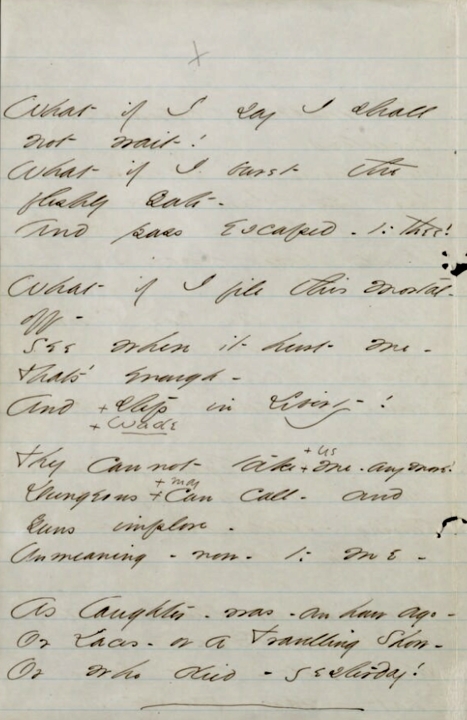 +
What if I say I shall
not wait!
What if I burst the
fleshly Gate -
And pass Escaped - to thee!
What if I file this mortal -
off -
See where it hurt me -
That's enough -
And + Step in Liberty!
+ Wade
+ us
They cannot take + me - any more!
+ may
Dungeons + Can call - and
Guns implore -
Unmeaning - now - to me -
As laughter - was - an hour ago -
Or Laces - or a Travelling Show -
Or who died - yesterday!